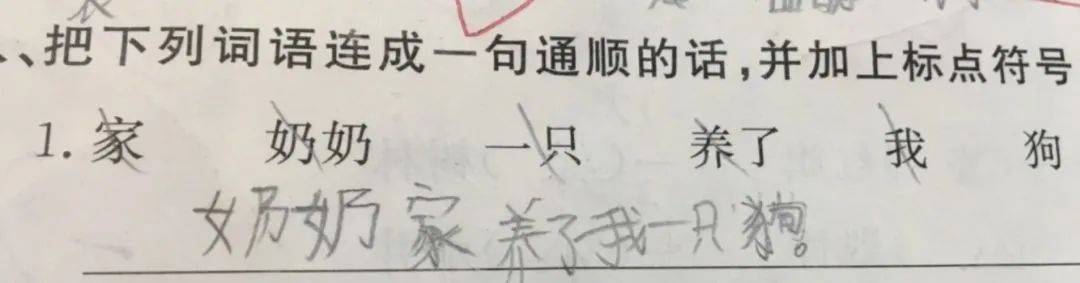 、把下列词语连成一句通顺的话,并加上标点符号
1. 家 奶奶 一只 养了 我 狗
奶奶家养了我一只狗。